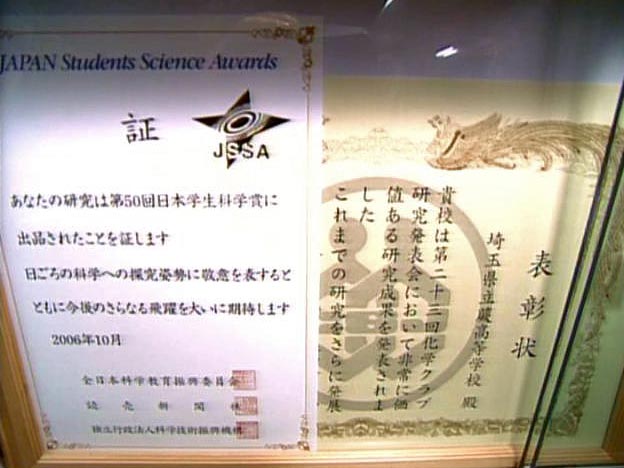 JAPAN Students Science Awards
証
JSSA
あなたの研究は第50回日本学生科学賞に
出品されたことを証します
日ごろの科学への探究姿勢に敬意を表すると
ともに今後のさらなる飛躍を大いに期待します
2006年10月
全日本科学教育振興委員会
読売新聞社
独立行政法人科学技術振興機構
表彰状
埼玉県立蕨高等学校 殿
貴校は第二十三回化学クラブ
研究発表会において非常に価
値ある研究成果を発表されま
した
これまでの研究をさらに発展